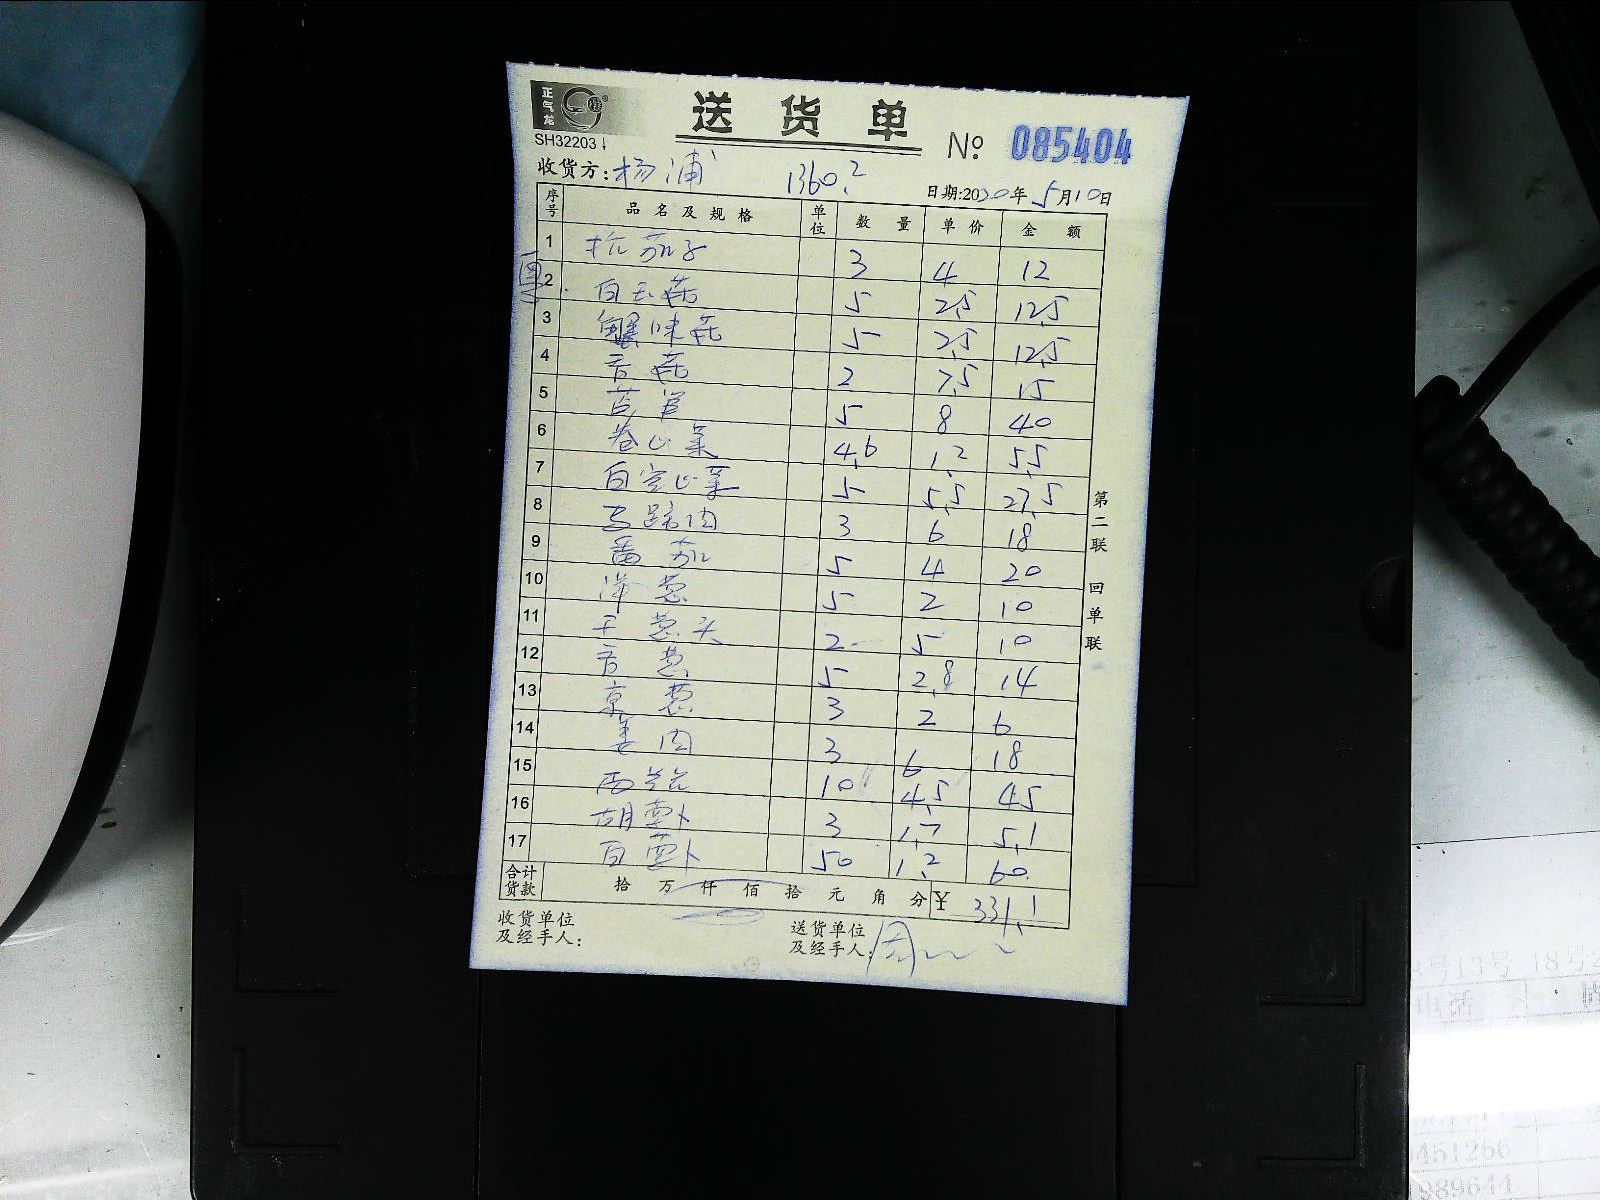 正气龙
SH32203
送货单
No 085404
收货方: 杨浦 1360.2
日期:2020年5月10日
序号 品名及规格 单位 数量 单价 金额
1 杭茄子 3 4 12
2 白玉菇 5 2.5 12.5
3 蟹味菇 5 2.5 12.5
4 香菇 2 7.5 15
5 5 8 40
6 卷心菜 4.6 1.2 5.5
7 白空心菜 5 5.5 27.5
8 马蹄肉 3 6 18
9 番茄 5 4 20
10 洋葱 5 2 10
11 干葱头 2 5 10
12 香葱 5 2.8 14
13 京葱 3 2 6
14 姜肉 3 6 18
15 西兰花 10 4.5 45
16 胡萝卜 3 1.7 5.1
17 白萝卜 50 1.2 60
合计货款 拾 万 仟 佰 拾 元 角 分 ¥ 331.1
收货单位及经手人:
送货单位及经手人: 周
第二联 回单联
号13号 18号
电话
451266
989644